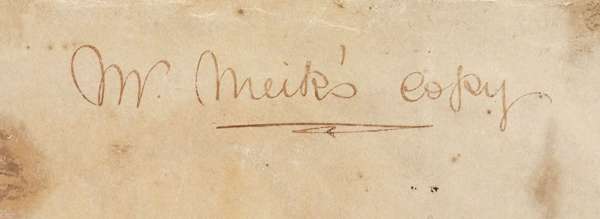 Mr. Meik's copy.